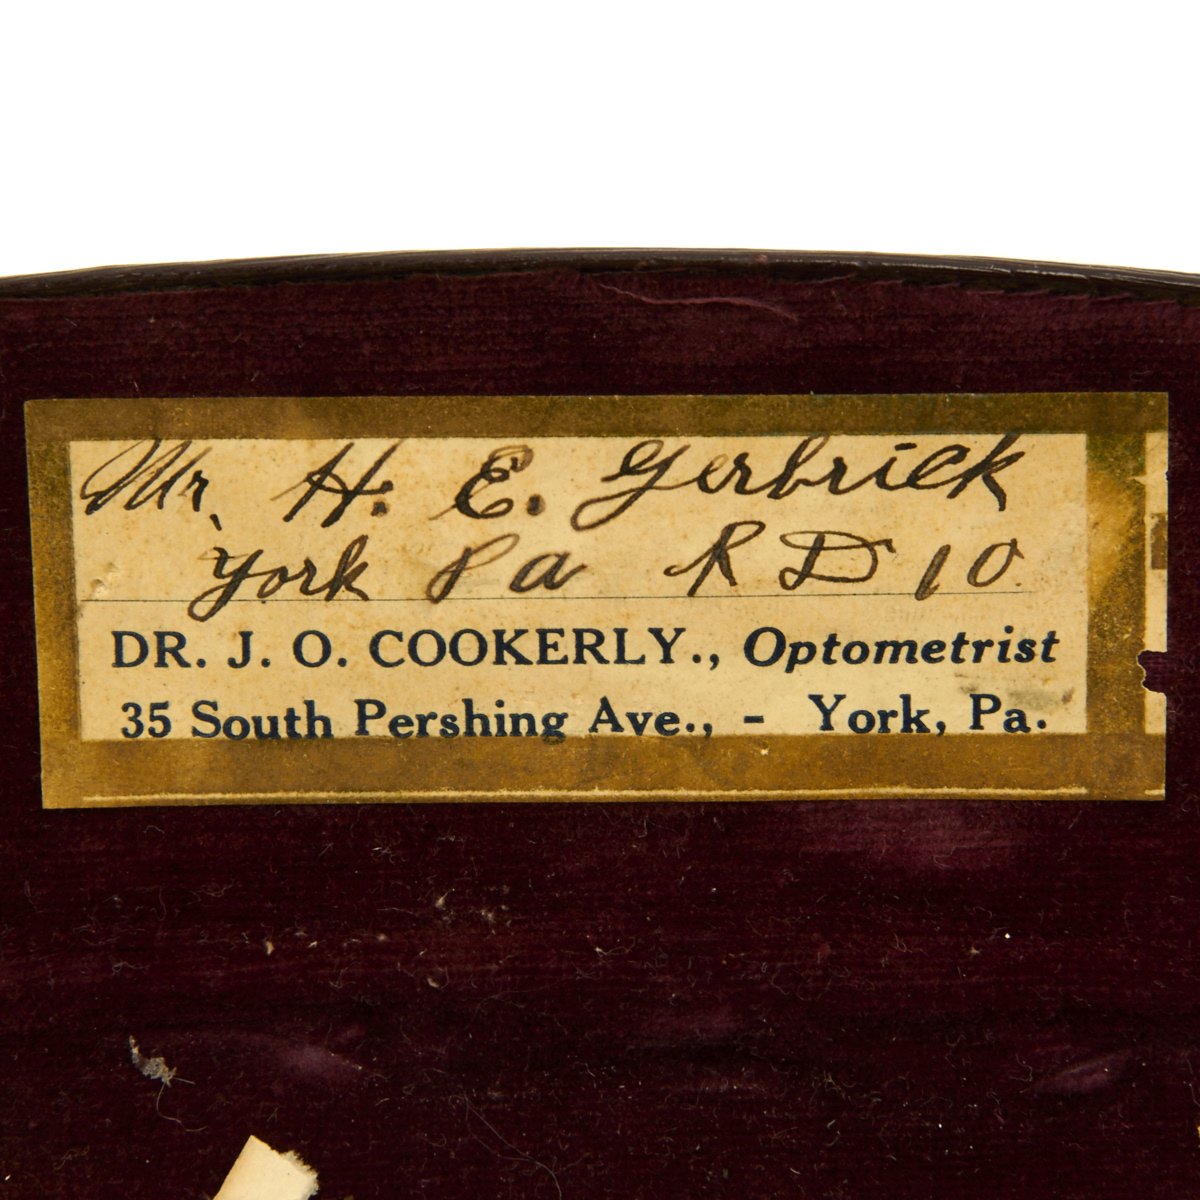 Mr. H. E. Gerbrick
York Pa R D 10.
DR. J. O. COOKERLY., Optometrist
35 South Pershing Ave., - York, Pa.